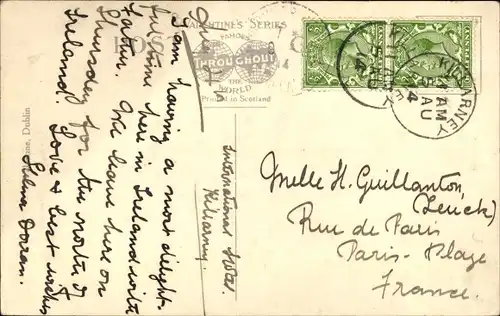 VALENTINE'S SERIES
FAMOUS
THROUGHOUT
THE
WORLD
Printed in Scotland
KILLARNEY
AM
AU
Dublin
International Hotel.
Killarney.
I am having a most delight-
ful time here in Ireland with
Father. We leave here on
Thursday for the north of
Ireland.
Love & best wishes
Selma Doran.
Melle H. Guillanton,
Rue de Paris
Paris-Plage
France.